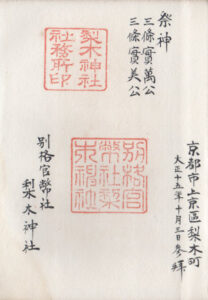 京都市上京區梨木町
大正十五年十月三日参拝
祭神
三條實萬公
三條實美公
梨木神社
社務所印
別格官
幣社梨
木神社
別格官幣社
梨木神社